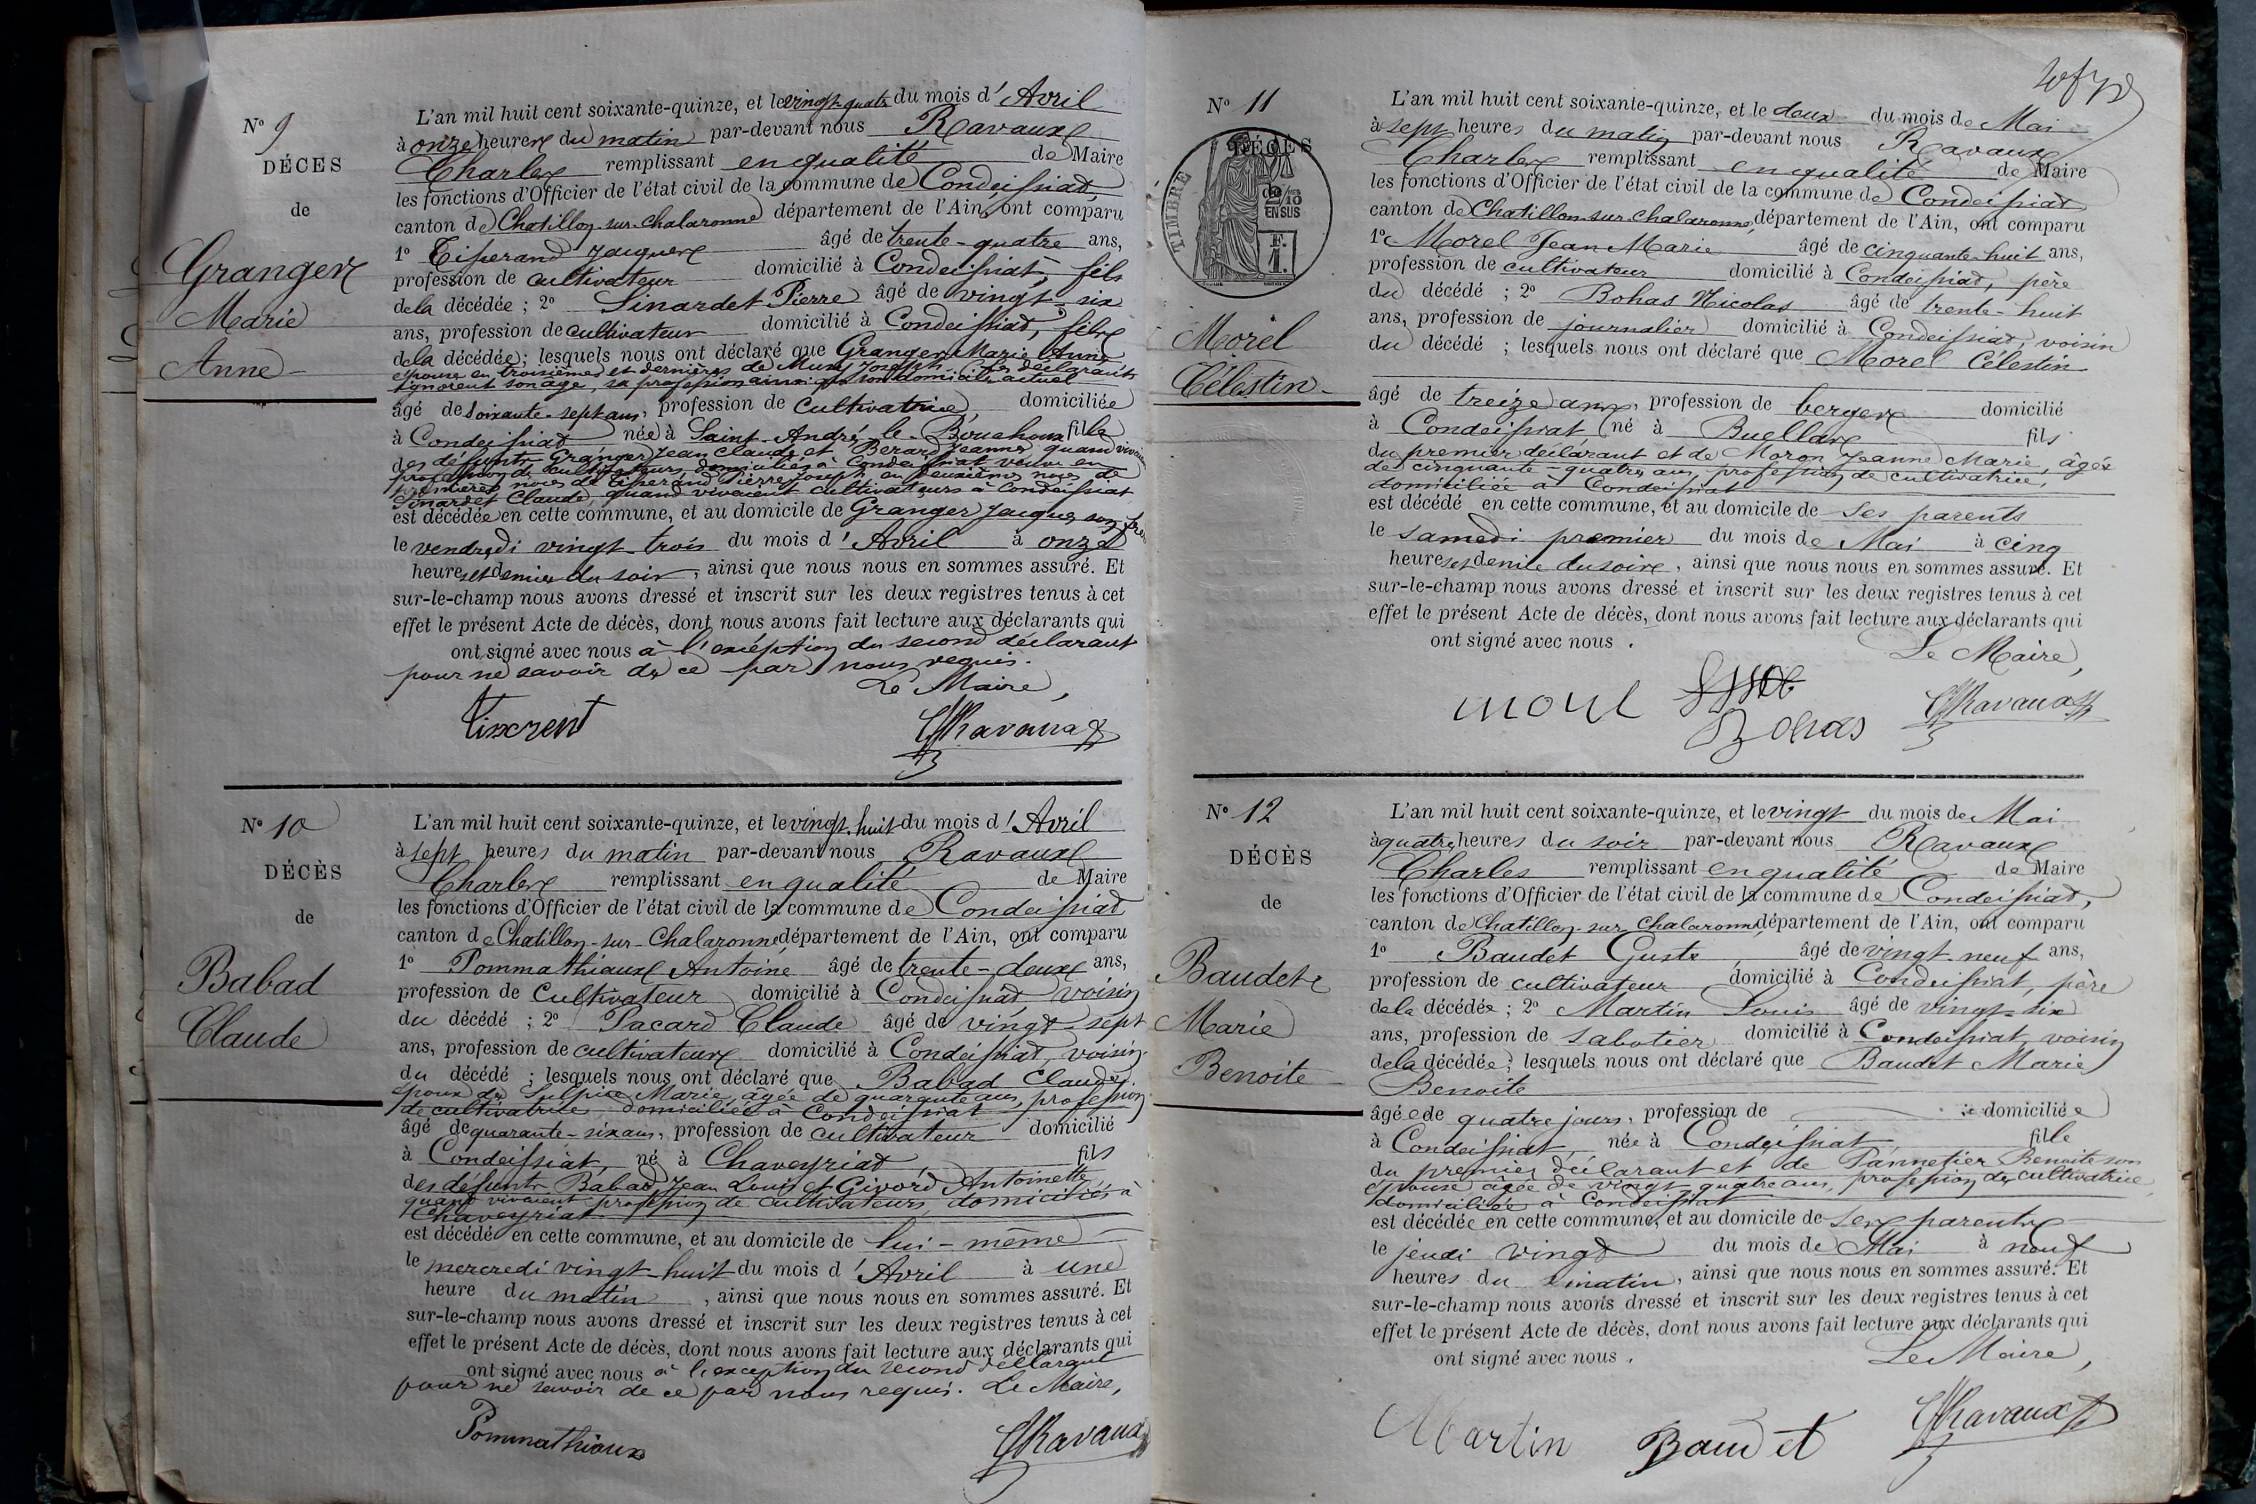 N° 9
DÉCÈS
de
Granger
Marie
Anne
L'an mil huit cent soixante-quinze, et le vingt-quatre du mois d'Avril
à onze heures du matin par-devant nous Ravaux
Charles remplissant en qualité de Maire
les fonctions d'Officier de l'état civil de la commune de Condeissiat,
canton de Chatillon-sur-Chalaronne département de l'Ain, ont comparu
1° Tiperand Jacques âgé de trente-quatre ans,
profession de cultivateur domicilié à Condeissiat, fils
de la décédée ; 2° Sinardet Pierre âgé de vingt-six
ans, profession de cultivateur domicilié à Condeissiat, fils
de la décédée ; lesquels nous ont déclaré que Granger Marie Anne
épouse en troisièmes et dernières de Joseph. Les déclarants
ignorent son âge, sa profession ainsi que son domicile actuel
âgé de soixante-sept ans, profession de cultivatrice, domiciliée
à Condeissiat née à Saint-André-le-Bouchoux fille
des défunts Granger Jean Claude et Berard Jeanne, quand vivaient
profession de cultivateurs, domiciliés à Condeissiat veuve en
premières noces de Tiperand Pierre Joseph en deuxièmes noces de
Sinardet Claude, quand vivaient cultivateurs à Condeissiat
est décédée en cette commune, et au domicile de Granger Jacques son frère
le vendredi vingt-trois du mois d'Avril à onze
heures et demie du soir, ainsi que nous nous en sommes assuré. Et
sur-le-champ nous avons dressé et inscrit sur les deux registres tenus à cet
effet le présent Acte de décès, dont nous avons fait lecture aux déclarants qui
ont signé avec nous à l'exéption du second déclarant
pour ne savoir de ce par nous requis.
Le Maire,
Ravaux
N° 10
DÉCÈS
de
Babad
Claude
L'an mil huit cent soixante-quinze, et le vingt-huit du mois d'Avril
à sept heures du matin par-devant nous Ravaux
Charles remplissant en qualité de Maire
les fonctions d'Officier de l'état civil de la commune de Condeissiat
canton de Chatillon-sur-Chalaronne département de l'Ain, ont comparu
1° Pommathiaux Antoine âgé de trente-deux ans,
profession de cultivateur domicilié à Condeissiat voisin
du décédé ; 2° Pacard Claude âgé de vingt-sept
ans, profession de cultivateur domicilié à Condeissiat, voisin
du décédé ; lesquels nous ont déclaré que Babad Claude,
époux de Sulpice Marie, âgée de quarante ans, profession
de cultivatrice, domiciliée à Condeissiat
âgé de quarante-six ans, profession de cultivateur domicilié
à Condeissiat, né à Chaveyriat fils
des défunts Babad Jean Louis et Givord Antoinette,
quand vivaient profession de cultivateurs, domiciliés à
Chaveyriat
est décédé en cette commune, et au domicile de lui-même
le mercredi vingt-huit du mois d'Avril à une
heure du matin, ainsi que nous nous en sommes assuré. Et
sur-le-champ nous avons dressé et inscrit sur les deux registres tenus à cet
effet le présent Acte de décès, dont nous avons fait lecture aux déclarants qui
ont signé avec nous à l'exception du second déclarant
pour ne savoir de ce par nous requis. Le Maire,
Pommathiaux
Ravaux
N° 11
DÉCÈS
TIMBRE
2/10
EN SUS
F.
1.
Morel
Célestin
L'an mil huit cent soixante-quinze, et le deux du mois de Mai
à sept heures du matin par-devant nous Ravaux
Charles remplissant en qualité de Maire
les fonctions d'Officier de l'état civil de la commune de Condeissiat
canton de Chatillon-sur-Chalaronne, département de l'Ain, ont comparu
1° Morel Jean Marie âgé de cinquante-huit ans,
profession de cultivateur domicilié à Condeissiat, père
du décédé ; 2° Bohas Nicolas âgé de trente-huit
ans, profession de journalier domicilié à Condeissiat, voisin
du décédé ; lesquels nous ont déclaré que Morel Célestin
âgé de treize ans, profession de berger domicilié
à Condeissiat né à Buellas fils
du premier déclarant et de Moron Jeanne Marie, âgée
de cinquante-quatre ans, profession de cultivatrice,
domiciliée à Condeissiat
est décédé en cette commune, et au domicile de ses parents
le samedi premier du mois de Mai à cinq
heures et demie du soir, ainsi que nous nous en sommes assuré. Et
sur-le-champ nous avons dressé et inscrit sur les deux registres tenus à cet
effet le présent Acte de décès, dont nous avons fait lecture aux déclarants qui
ont signé avec nous.
Le Maire,
morel
Bohas
Ravaux
N° 12
DÉCÈS
de
Baudet
Marie
Benoite
L'an mil huit cent soixante-quinze, et le vingt du mois de Mai
à quatre heures du soir par-devant nous Ravaux
Charles remplissant en qualité de Maire
les fonctions d'Officier de l'état civil de la commune de Condeissiat,
canton de Chatillon-sur-Chalaronne, département de l'Ain, ont comparu
1° Baudet Guste âgé de vingt-neuf ans,
profession de cultivateur domicilié à Condeissiat, père
de la décédée ; 2° Martin Louis âgé de vingt-six
ans, profession de sabotier domicilié à Condeissiat, voisin
de la décédée ; lesquels nous ont déclaré que Baudet Marie
Benoite
âgée de quatre jours, profession de domiciliée
à Condeissiat, née à Condeissiat fille
du premier déclarant et de Pannetier Benoite son
épouse âgée de vingt-quatre ans, profession de cultivatrice,
domiciliée à Condeissiat
est décédée en cette commune, et au domicile de ses parents
le jeudi vingt du mois de Mai à neuf
heures du matin, ainsi que nous nous en sommes assuré. Et
sur-le-champ nous avons dressé et inscrit sur les deux registres tenus à cet
effet le présent Acte de décès, dont nous avons fait lecture aux déclarants qui
ont signé avec nous.
Le Maire,
Martin
Baudet
Ravaux